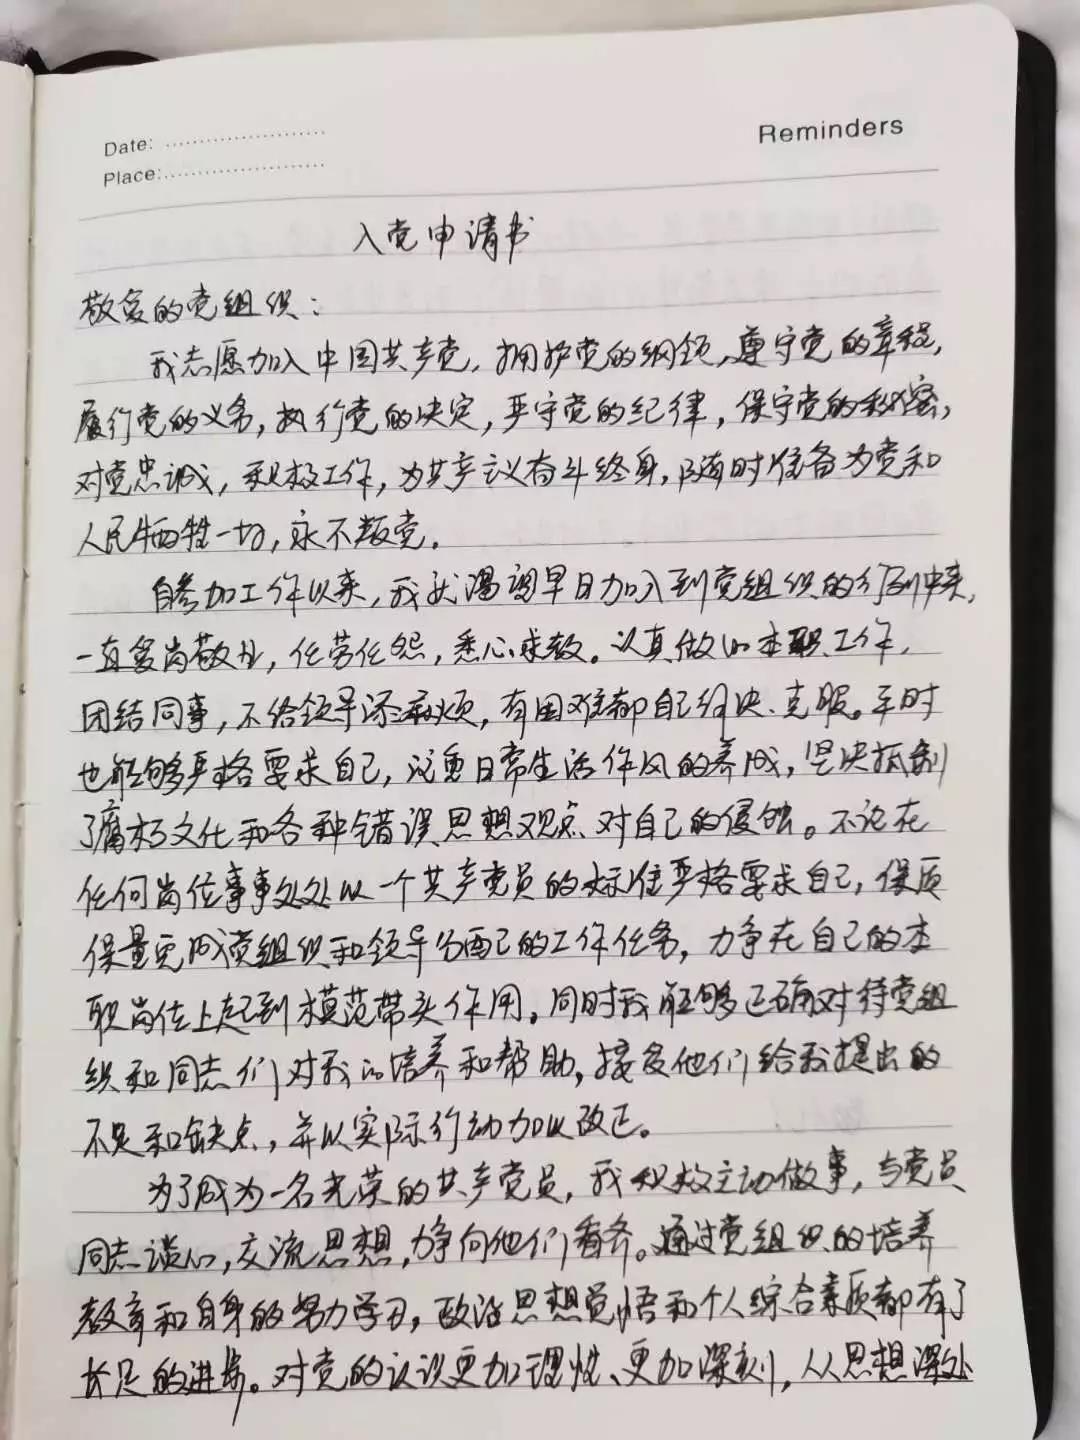 Date:
Place:
Reminders
入党申请书
敬爱的党组织：
我志愿加入中国共产党，拥护党的纲领，遵守党的章程，
履行党的义务，执行党的决定，严守党的纪律，保守党的秘密，
对党忠诚，积极工作，为共产主议奋斗终身，随时准备为党和
人民牺牲一切，永不叛党。
自参加工作以来，我就渴望早日加入到党组织的行列中来，
一直爱岗敬业，任劳任怨，悉心求教。认真做的本职工作，
团结同事，不给领导添麻烦，有困难都自己解决、克服。平时
也能够严格要求自己，注重日常生活作风的养成，坚决抵制
了腐朽文化和各种错误思想观点对自己的侵蚀。不论在
任何岗位事事处处以一个共产党员的标准严格要求自己，保质
保量完成党组织和领导分配己的工作任务，力争在自己的本
职岗位上起到模范带头作用。同时我能够正确对待党组
织和同志们对我的培养和帮助，接受他们给我提出的
不足和缺点，并以实际行动加以改正。
为了成为一名光荣的共产党员，我积极主动做事，与党员
同志谈心，交流思想，力争向他们看齐。通过党组织的培养
教育和自身的努力学习，政治思想觉悟和个人综合素质都有了
长足的进步。对党的认识更加理性、更加深刻，从思想深处